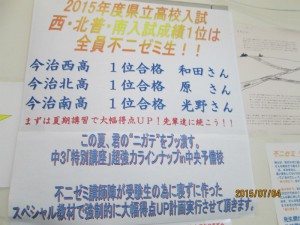 2015年度県立高校入試
西・北普・南入試成績1位は
全員不二ゼミ生！！
今治西高　1位合格　和田さん
今治北高　1位合格　原　さん
今治南高　1位合格　光野さん
まずは夏期講習で大幅得点UP！先輩達に続こう！！
この夏、君の“ニガテ”をブッ潰す。
中3「特別講座」超強力ラインナップin中央予備校
不二ゼミ講師陣が受験生の為に寝ずに作った
スペシャル教材で強制的に大幅得点UP計画実行させて頂きます。
2015/07/04